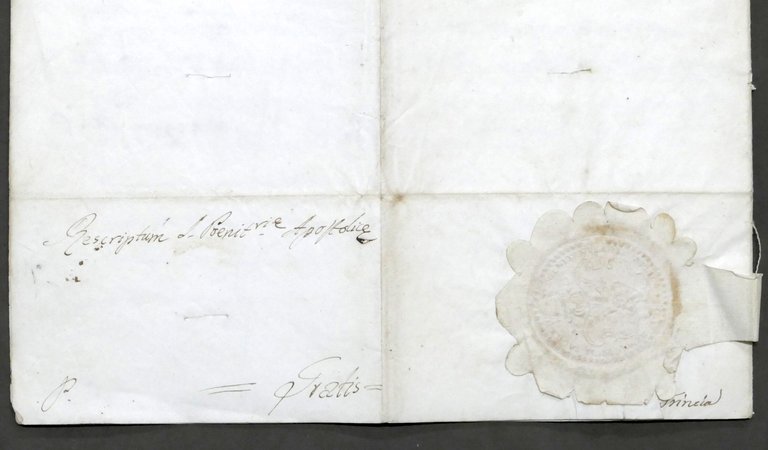 Rescriptum S. Poenit.rie Apostolice
P. Gratis
Trincia